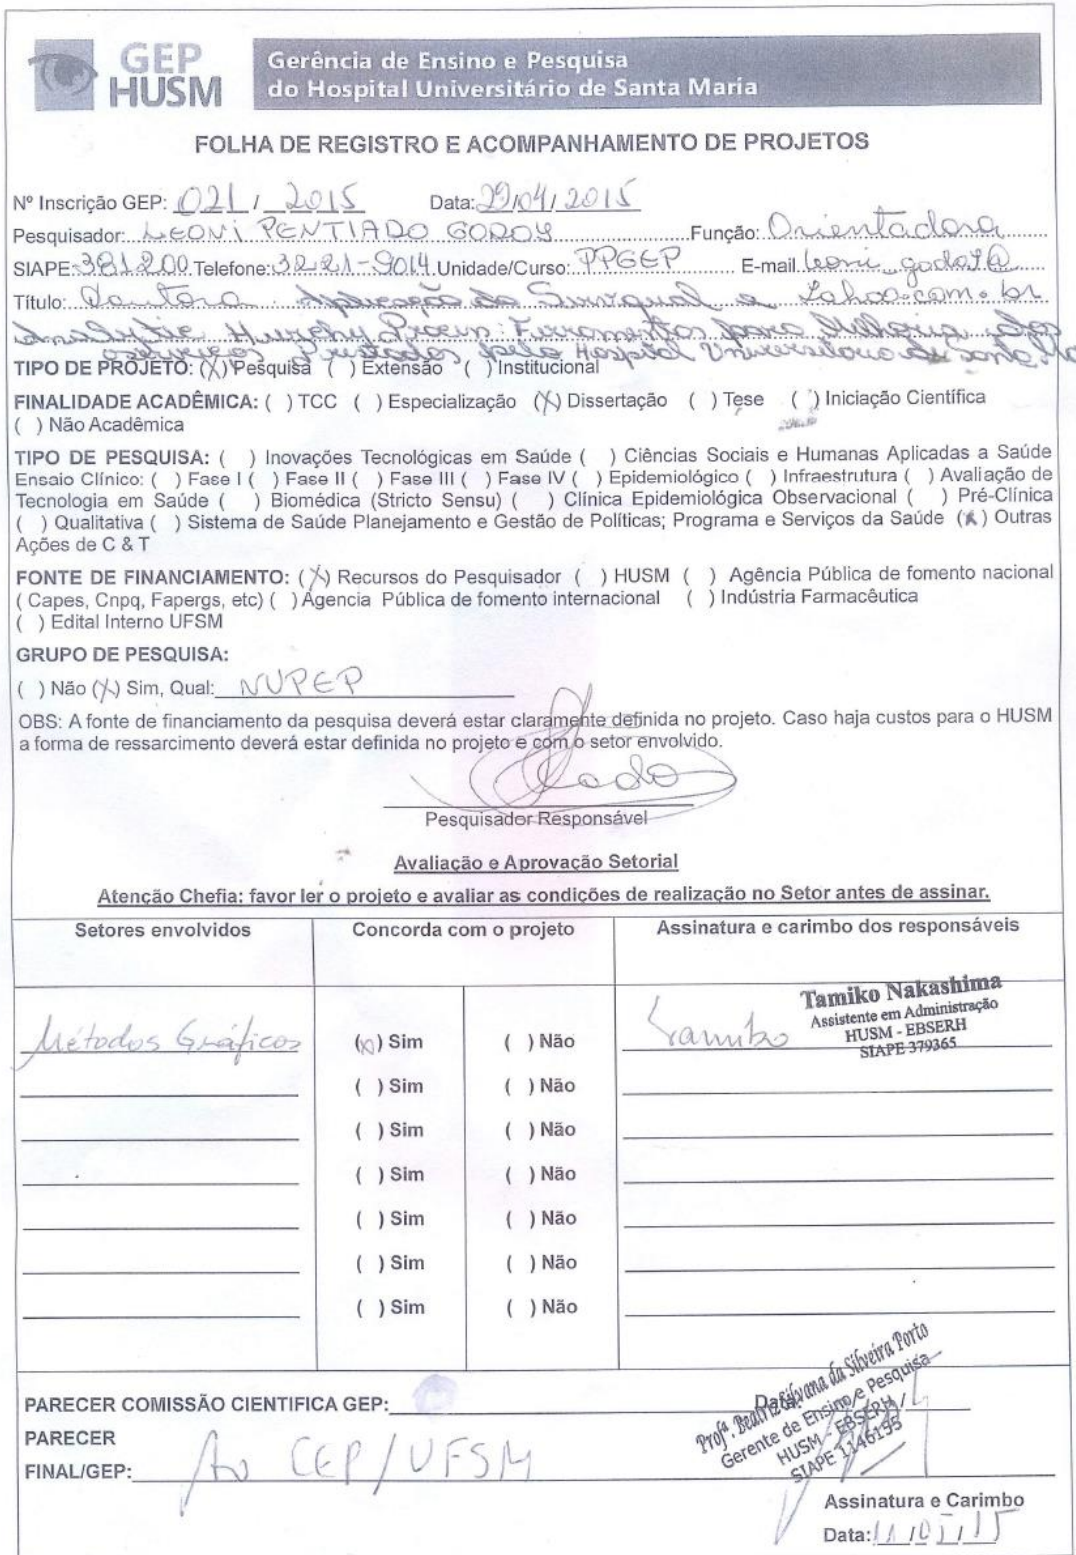 GEP
HUSM
Gerência de Ensino e Pesquisa
do Hospital Universitário de Santa Maria
FOLHA DE REGISTRO E ACOMPANHAMENTO DE PROJETOS
Nº Inscrição GEP: 021 / 2015 Data: 29/04/2015
Pesquisador: LEONI PENTIADO GODOY Função: Orientadora
SIAPE: 381200 Telefone: 3221-9014 Unidade/Curso: PPGEP E-mail leoni_godoy@
Título: Doutora Aplicação da Servqual e Yahoo.com.br
Analytic Process: Ferramentas para Melhoria dos
serviços Prestados pelo Hospital Universitário de Santa Ma
TIPO DE PROJETO: (X) Pesquisa ( ) Extensão ( ) Institucional
FINALIDADE ACADÊMICA: ( ) TCC ( ) Especialização (X) Dissertação ( ) Tese ( ) Iniciação Científica
( ) Não Acadêmica
TIPO DE PESQUISA: ( ) Inovações Tecnológicas em Saúde ( ) Ciências Sociais e Humanas Aplicadas a Saúde
Ensaio Clínico: ( ) Fase I ( ) Fase II ( ) Fase III ( ) Fase IV ( ) Epidemiológico ( ) Infraestrutura ( ) Avaliação de
Tecnologia em Saúde ( ) Biomédica (Stricto Sensu) ( ) Clínica Epidemiológica Observacional ( ) Pré-Clínica
( ) Qualitativa ( ) Sistema de Saúde Planejamento e Gestão de Políticas; Programa e Serviços da Saúde (X) Outras
Ações de C & T
FONTE DE FINANCIAMENTO: (X) Recursos do Pesquisador ( ) HUSM ( ) Agência Pública de fomento nacional
( Capes, Cnpq, Fapergs, etc) ( ) Agencia Pública de fomento internacional ( ) Indústria Farmacêutica
( ) Edital Interno UFSM
GRUPO DE PESQUISA:
( ) Não (X) Sim, Qual: NUPEP
OBS: A fonte de financiamento da pesquisa deverá estar claramente definida no projeto. Caso haja custos para o HUSM
a forma de ressarcimento deverá estar definida no projeto e com o setor envolvido.
Pesquisador Responsável
Avaliação e Aprovação Setorial
Atenção Chefia: favor ler o projeto e avaliar as condições de realização no Setor antes de assinar.
Setores envolvidos Concorda com o projeto Assinatura e carimbo dos responsáveis
Métodos Gráficos (X) Sim ( ) Não Tamiko
Tamiko Nakashima
Assistente em Administração
HUSM - EBSERH
SIAPE 379365
( ) Sim ( ) Não
( ) Sim ( ) Não
( ) Sim ( ) Não
( ) Sim ( ) Não
( ) Sim ( ) Não
( ) Sim ( ) Não
PARECER COMISSÃO CIENTIFICA GEP: Data: / /
Profª. Beatriz Silvana da Silveira Porto
Gerente de Ensino e Pesquisa
HUSM - EBSERH
SIAPE 1146195
PARECER
FINAL/GEP: Ao CEP/UFSM
Assinatura e Carimbo
Data: 11/05/15